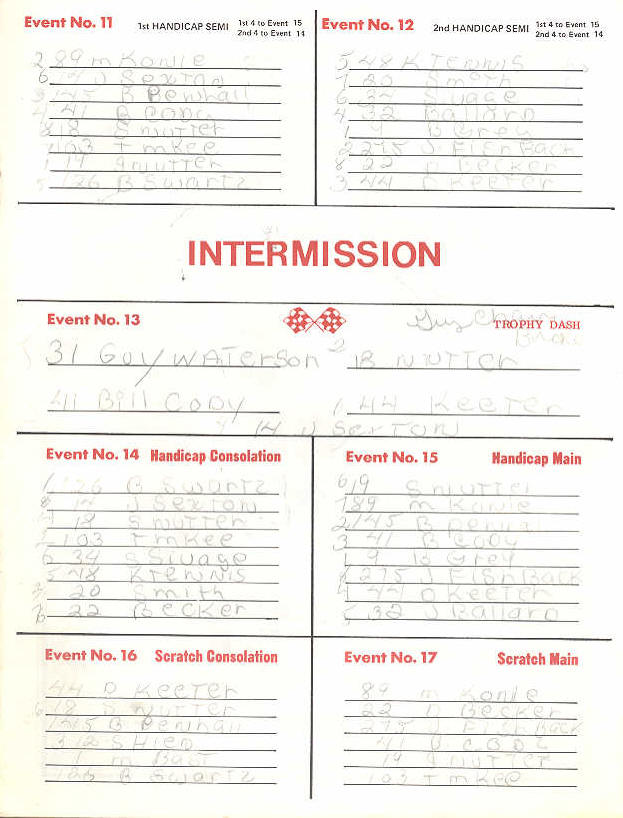 Event No. 11 1st HANDICAP SEMI 1st 4 to Event 15
2nd 4 to Event 14
2 89 m Konie
6 14 J Sexton
3 145 B Penhall
4 41 B Cody
8 18 S nutter
103 T mKee
1 19 S nutter
5 126 B Swartz
Event No. 12 2nd HANDICAP SEMI 1st 4 to Event 15
2nd 4 to Event 14
5 48 K TENNIS
7 20 Smith
6 34 Sivage
4 32 Ballard
1 9 B Grey
2 275 J. Fish Back
8 22 D Becker
3 44 D Keeter
INTERMISSION
Event No. 13 TROPHY DASH
31 Guy WATerson
2 18 NUTTer
41 Bill Cody
1 44 Keeter
14 J SexTON
Event No. 14 Handicap Consolation
126 B Swartz
8 14 J SexTON
18 S nutter
103 T mKee
6 34 S Sivage
5 48 K Tennis
20 Smith
22 Becker
Event No. 15 Handicap Main
6 19 S nutter
89 m Konie
2 145 B Penhall
3 41 B Cody
1 9 B Grey
275 J Fish Back
44 D Keeter
32 J Ballard
Event No. 16 Scratch Consolation
44 D Keeter
18 S nutter
145 B Penhall
312 S Hien
1 m Bast
126 B Swartz
Event No. 17 Scratch Main
89 m Konie
22 D Becker
275 J Fish Back
41 B Cody
19 S nutter
103 T mKee